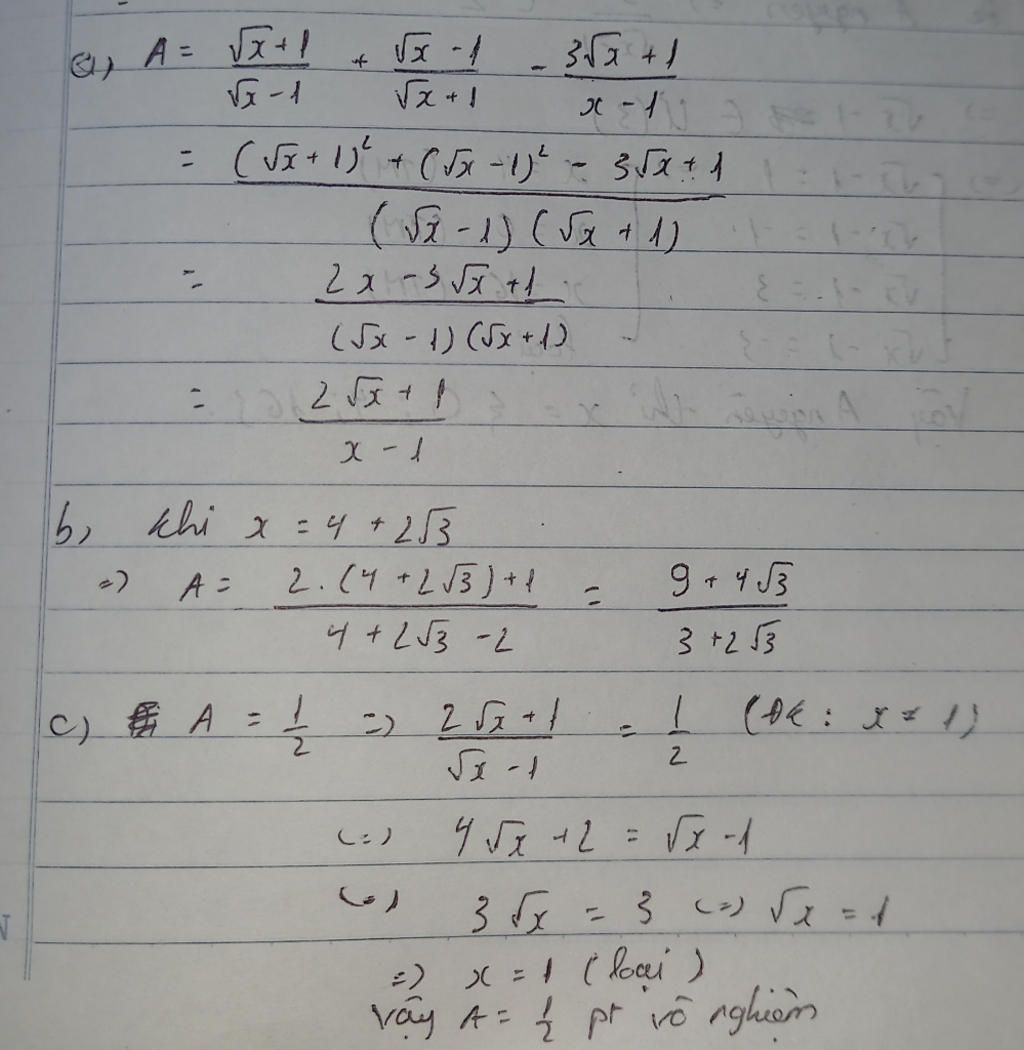 a) A = (√x + 1)/(√x - 1) + (√x - 1)/(√x + 1) - (3√x + 1)/(x - 1)
= ((√x + 1)² + (√x - 1)² - 3√x + 1)/((√x - 1)(√x + 1))
= (2x - 3√x + 1)/((√x - 1)(√x + 1))
= (2√x + 1)/(x - 1)
b, khi x = 4 + 2√3
=> A = (2.(4 + 2√3) + 1)/(4 + 2√3 - 2) = (9 + 4√3)/(3 + 2√3)
c) A = 1/2 => (2√x + 1)/(√x - 1) = 1/2 (ĐK : x ≠ 1)
(=) 4√x + 2 = √x - 1
(=) 3√x = 3 (=) √x = 1
=) x = 1 (loại)
Vậy A = 1/2 pt vô nghiệm